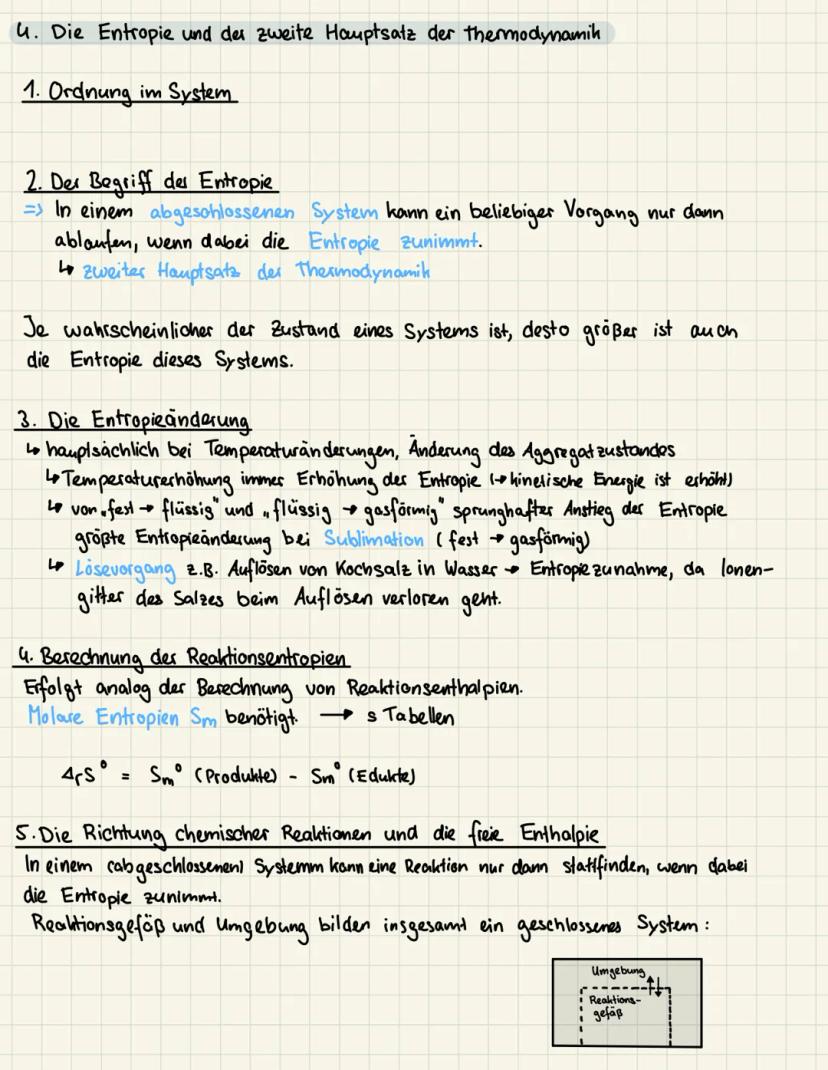 4. Die Entropie und der zweite Hauptsatz der Thermodynamik
1. Ordnung im System
2. Der Begriff der Entropie
=> In einem abgeschlossenen System kann ein beliebiger Vorgang nur dann
ablaufen, wenn dabei die Entropie zunimmt.
↳ zweiter Hauptsatz der Thermodynamik
Je wahrscheinlicher der Zustand eines Systems ist, desto größer ist auch
die Entropie dieses Systems.
3. Die Entropieänderung
↳ hauptsächlich bei Temperaturänderungen, Änderung des Aggregatzustandes
↳ Temperaturerhöhung immer Erhöhung der Entropie (→ kinetische Energie ist erhöht)
↳ von „fest → flüssig" und „flüssig → gasförmig" sprunghafter Anstieg der Entropie
größte Entropieänderung bei Sublimation (fest → gasförmig)
↳ Lösevorgang z.B. Auflösen von Kochsalz in Wasser → Entropiezunahme, da Ionen-
gitter des Salzes beim Auflösen verloren geht.
4. Berechnung der Reaktionsentropien
Erfolgt analog der Berechnung von Reaktionsenthalpien.
Molare Entropien Sm benötigt. → s Tabellen
ΔrS° = Sm° (Produkte) - Sm° (Edukte)
5. Die Richtung chemischer Reaktionen und die freie Enthalpie
In einem (abgeschlossenen) Systemm kann eine Reaktion nur dann stattfinden, wenn dabei
die Entropie zunimmt.
Reaktionsgefäß und Umgebung bilden insgesamt ein geschlossenes System:
Umgebung
Reaktions-
gefäß